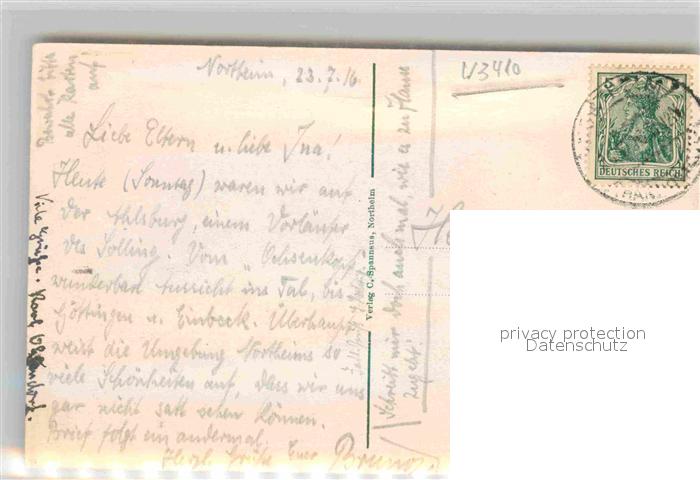 Bewahrt bitte
alle Karten
auf!
Northeim, 23.7.16
Liebe Eltern u. liebe Ina!
Heute (Sonntag) waren wir auf
der Ahlsburg, einem Vorläufer
des Solling. Vom "Ochsenkopf"
wunderbare Aussicht ins Tal, bis
Göttingen u. Einbeck. Überhaupt
weist die Umgebung Northeims so
viele Schönheiten auf, dass wir uns
gar nicht satt sehen können.
Brief folgt ein andermal.
Herzl. Grüße Euer Bruno.
Viele Grüße. Karl
Verlag C. Spannaus, Northeim
Schreibt mir doch auch mal, wie es zu Hause
zugeht!
W3410
DEUTSCHES REICH
privacy protection
Datenschutz